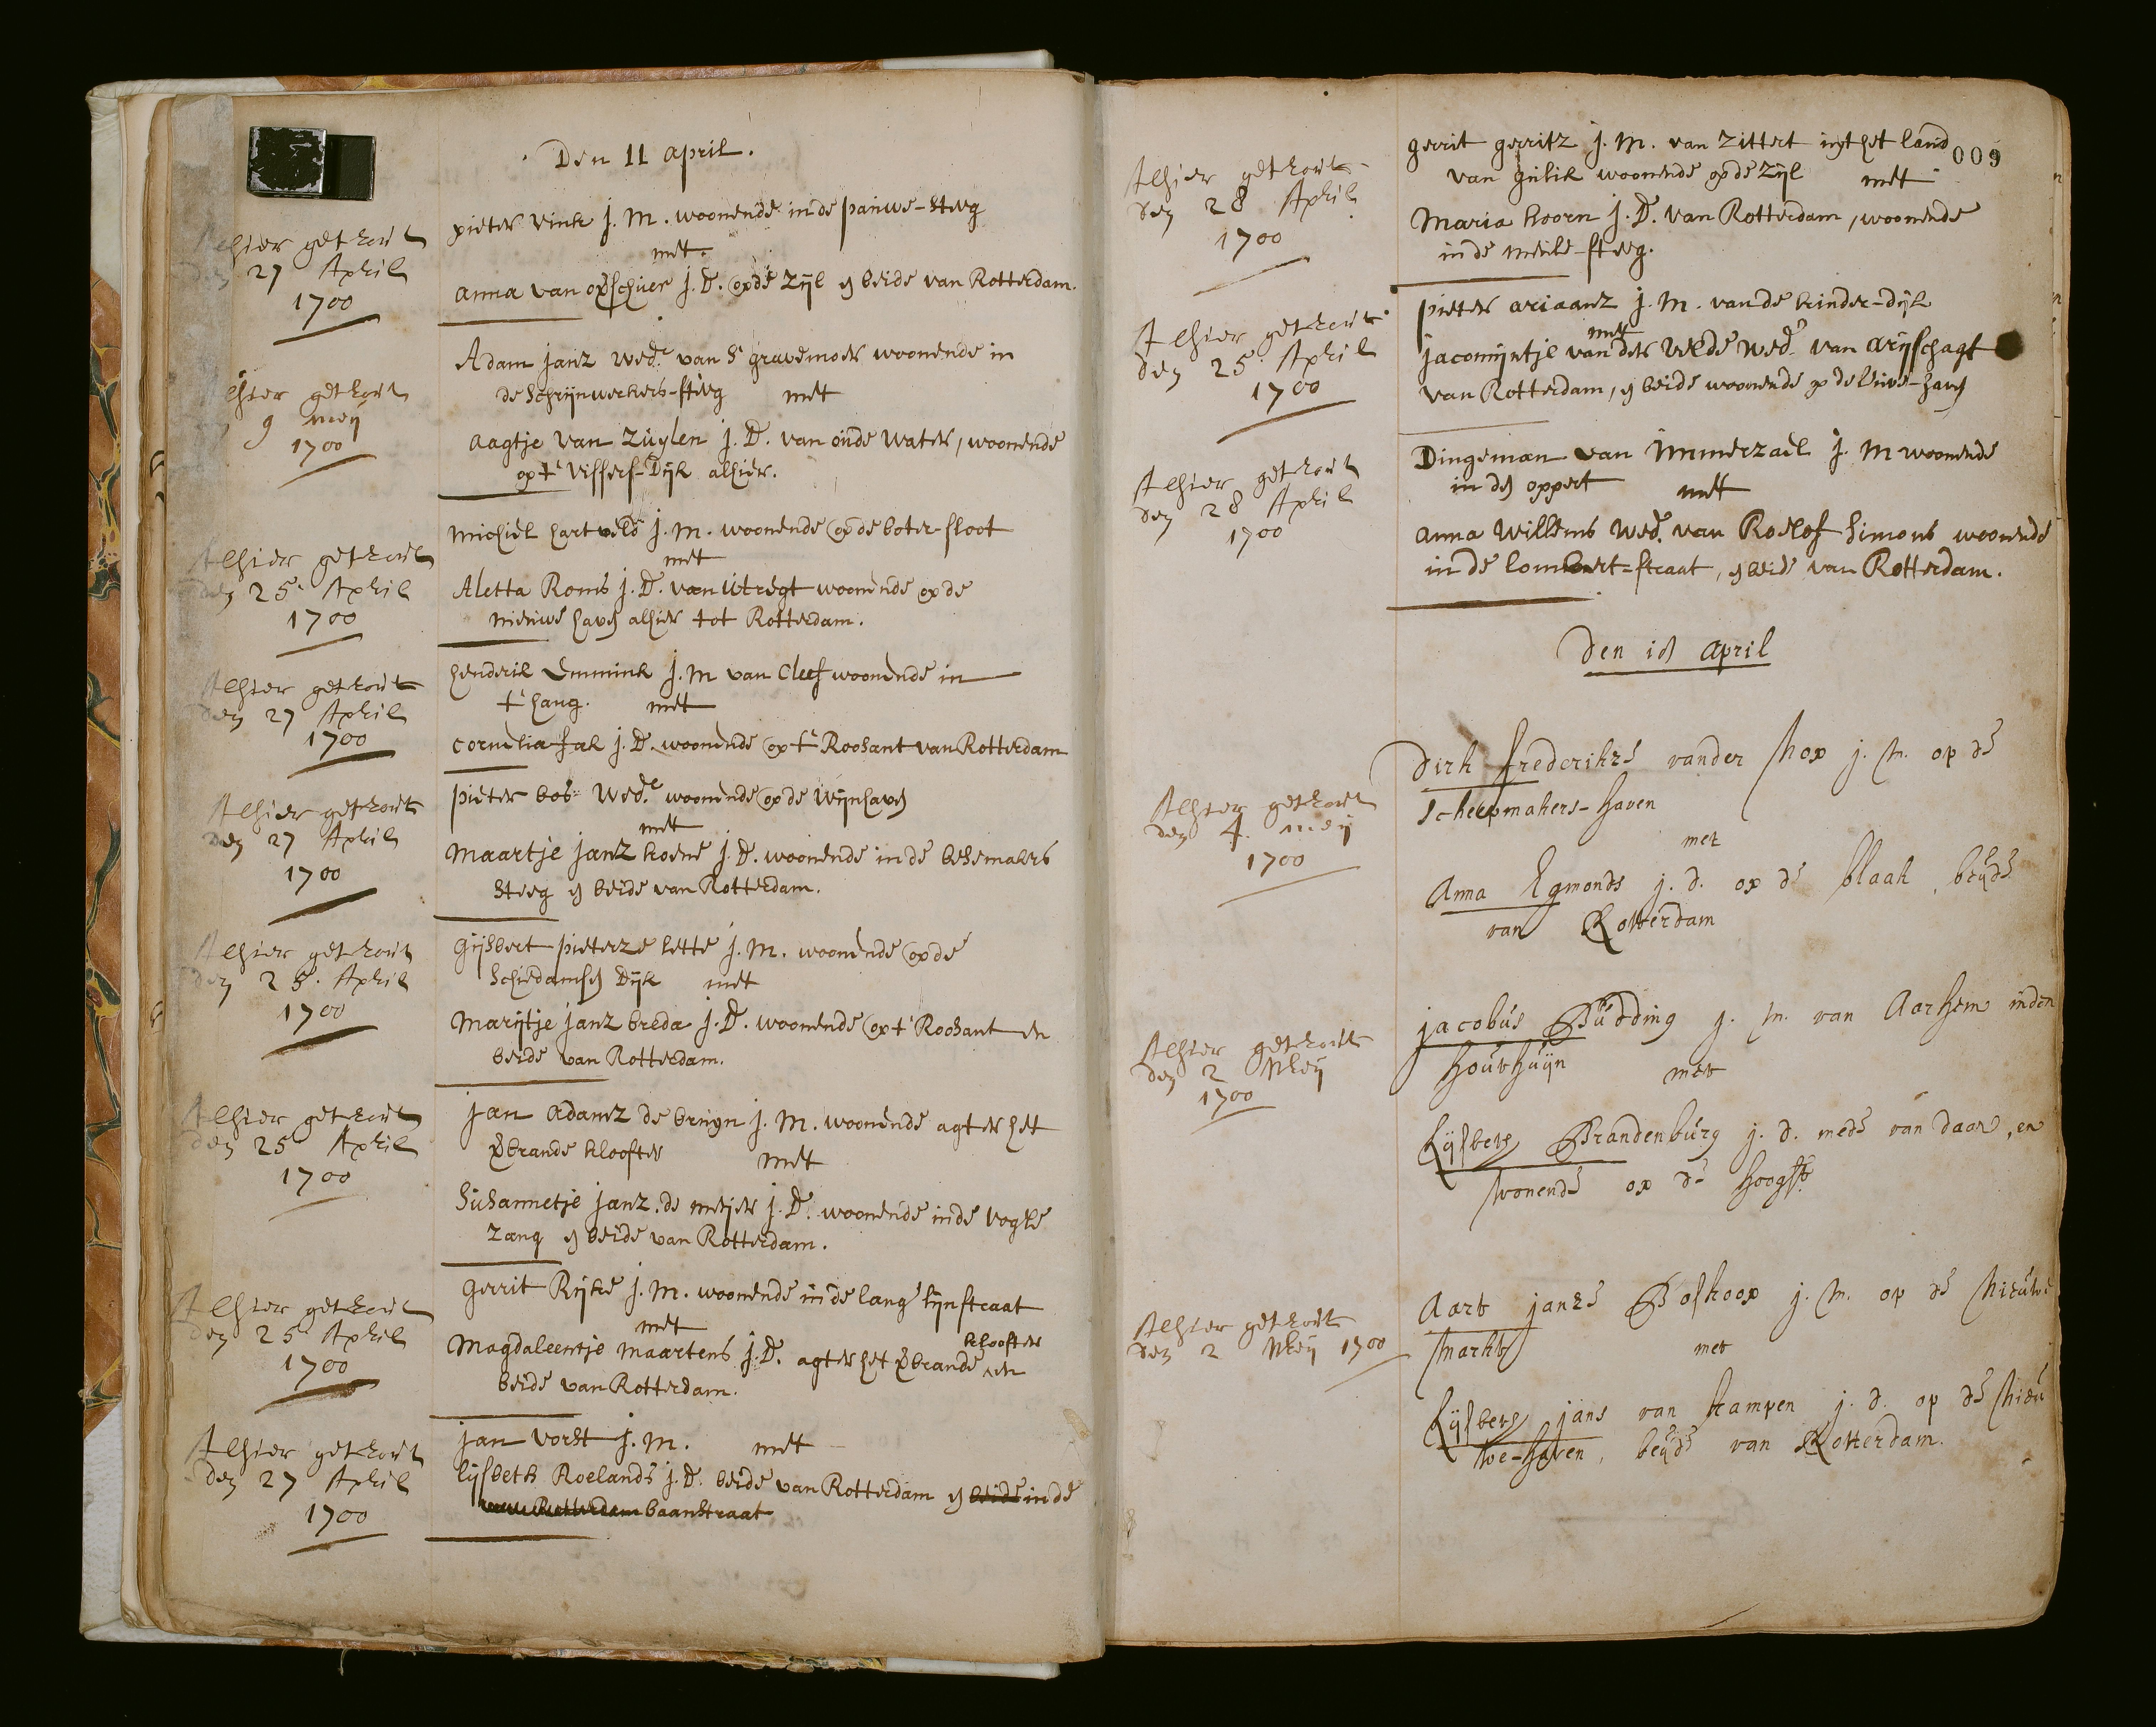 Den 11 april.
Alhier getrout
den 27 April
1700
pieter vink j. M. woonende in de pauwe-steeg
met
anna van opschuer j. D. op de Zijl en beide van Rotterdam.
Alhier getrout
9 meij
1700
Adam janz wedr. van S gravemoer woonende in
de Schrijnwerkers-steeg met
aagtje van Zuylen j. D. van oude water, woonende
op t' Vissers-Dijk alhier.
Alhier getrout
den 25 April
1700
michiel hartveld j. M. woonende op de boter-sloot
met
Aletta Roms j. D. van Utregt woonende op de
nieuwe haven alhier tot Rotterdam.
Alhier getrout
den 27 April
1700
henderik Emmink j. M van Cleef woonende in
t' hang. met
cornelia hak j. D. woonende op t' Roosant van Rotterdam
Alhier getrout
den 27 April
1700
pieter bos wedr. woonende op de Wijnhaven
met
maartje janz koene j. D. woonende in de besemakers
steeg en beide van Rotterdam.
Alhier getrout
den 25 April
1700
Gijsbert pieterze lette j. M. woonende op de
Schiedamsen Dijk met
Marijtje janz breda j. D. woonende op t' Roosant en
beide van Rotterdam.
Alhier getrout
den 25 April
1700
jan adamz de bruyn j. M. woonende agter het
verbrande klooster met
Susannetje janz. de meijer j. D. woonende in de vogle
zang en beide van Rotterdam.
Alhier getrout
den 25 April
1700
Gerrit Rijke j. M. woonende in de lange lijnstraat
met
Magdaleentje maartens j. D. agter het verbrande klooster en
beide van Rotterdam.
Alhier getrout
den 27 April
1700
jan vorst j. M. met
lijsbeth Roelands j. D. beide van Rotterdam en beide in de
van Rotterdam baanstraat
009
Alhier getrout
den 28 April
1700
gerrit gerritz j. M. van Zittert uyt het land
van gulik woonende op de Zijl met
Maria hoorn j. D. van Rotterdam, woonende
in de meule-steeg.
Alhier getrout
den 25 April
1700
pieter ariaanz j. M. van de kinder-dijk
met
jacomijntje van der velde wed. van arij schagt
van Rotterdam, en beide woonende op de leuve-haven
Alhier getrout
den 28 April
1700
Dingeman van immerzail j. M woonende
in den oppert met
anna willems wed. van Roelof Simons woonende
in de lombert-straat, en beide van Rotterdam.
Den 18 april
Alhier getrout
den 4 meij
1700
Dirk frederikze vander Mop j. m. op de
scheepmakers-haven
met
Anna Egmonds j. d. op de blaak, beijde
van Rotterdam
Alhier getrout
den 2 Meij
1700
jacobus Budding j. m. van Aarhem in den
Houttuijn met
Lijsbeth Brandenburg j. d. mede van daar, en
wonende op de Hoogstr.
Alhier getrout
den 2 Meij 1700
Aart janze Boskoop j. m. op de Nieuwe
markt met
Lijsbeth jans van Kampen j. d. op de Nieu
we-haven, beijde van Rotterdam.